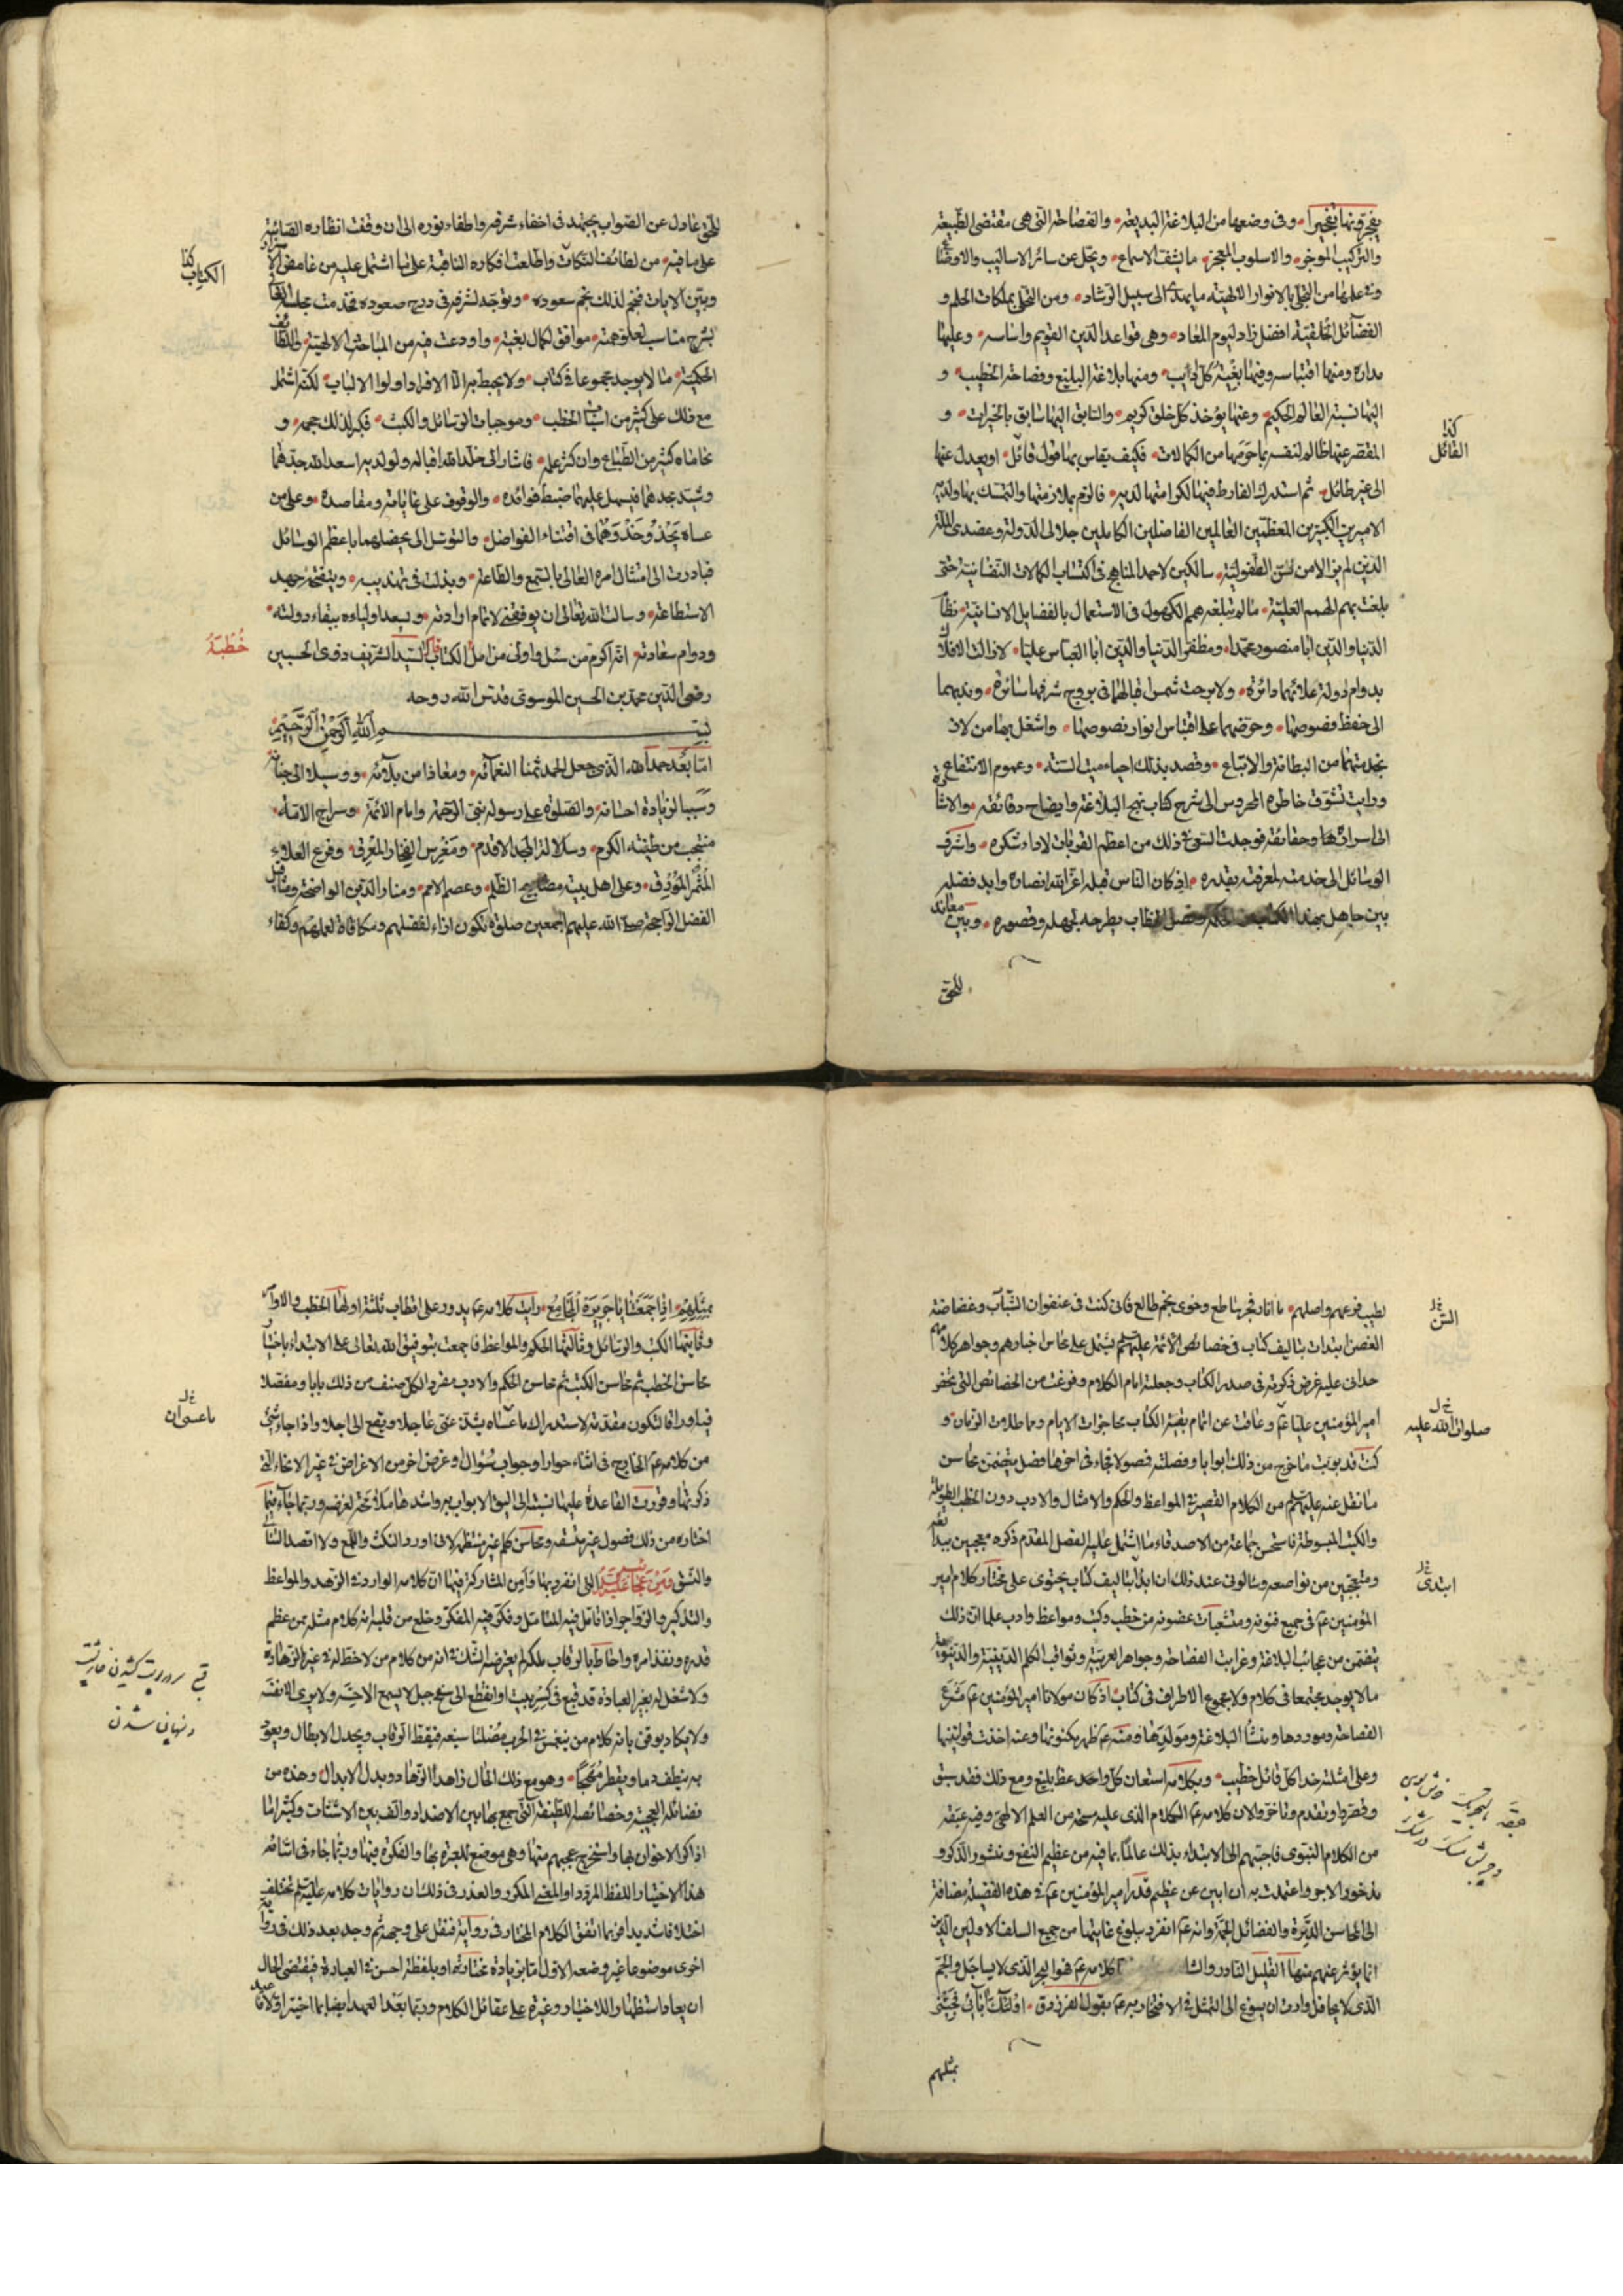 يفجرونها تفجيرا وفى وضعها من البلاغة البديعة والفصاحة التى هى مقتضى الطبيعة
والتركيب الموجز والاسلوب المعجز ما يشنف الاسماع ويجل عن سائر الاساليب والاوضاع
وفى علمها من التجلى بالانوار الالهية ما يهدى الى سبيل الرشاد ومن التحلى بملكات الحلم و
الفضآئل الخلقية افضل زاد ليوم المعاد وهى قواعد الدين القويم واساسه وعليها
مداره ومنها اقتباسه وفيها بغية كل طالب ومنها بلاغة البليغ وفصاحة الخطيب و
اليها نسبة العالم الحكيم وعنها يؤخذ كل خلق كريم والسابق اليها سابق بالخيرات و
كذا
القائل
المقصر عنها ظالم لنفسه باخرجها من الكمالات فكيف يقاس بها قول قائل او يعدل عنها
الى غير طائل ثم استدرك الفارط فيها لكرامتها لديه فالزم بملازمتها والتمسك بها ولديه
الاميرين الكبيرين المعظمين العالمين الفاضلين الكاملين جلالى الدولة وعضدى الملة
الذين لم يزالا من سن الطفولية سالكين لاحمد المناهج فى اكتساب الكمالات النفسانية حتى
بلغت بهم الهمم العلية ما لم تبلغه همم الكهول فى الاستعمال بالفضايل الانسانية نظام
الدنيا والدين ابا منصور محمدا ومظفر الدنيا والدين ابا العباس عليا لا زالت الافلاك
بدوام دولة علائهما دائرة ولا برحت شمس اقبالهما فى بروج شرفها سائرة وندبهما
الى حفظ فصوصها وحرضهما على اقتباس انوار نصوصها واشغل بها من لاذ
بخدمتهما من البطانة والاتباع وقصد بذلك احياء ميت السنة وعموم الانتفاع
ورايت تشوق خاطره المحروس الى شرح كتاب نهج البلاغة وايضاح دقائقه والاشارة
الى اسراره وحقائقه فوجدت السعى فى ذلك من اعظم القربات لاداء شكره واشرف
الوسائل الى خدمته لمعرفته بقدره اذ كان الناس قبله اعز الله انصاره وابد فضله
بين جاهل بهذا الخطاب يطرحه لجهله وقصوره وبين معاند
للحق
للحق عادل عن الصواب يجتهد فى اخفاء شرفه واطفاء نوره الى ان وقفت انظاره الصائبة
على ما فيه من لطائف النكات واطلعت افكاره الثاقبة على ما اشتمل عليه من غامض الاسرار
كذا
الكتاب
وبين الايات فنجم لذلك نجم سعوده وتوجه لشرفه فى درج صعوده فخدمت مجلسه العالى
بشرح مناسب لعلو همته موافق لكمال بغيته واودعت فيه من المباحث الالهية واللطائف
الحكمية ما لا يوجد مجموعا فى كتاب ولا يحيط به الا الافراد اولوا الالباب لكنه اشتمل
مع ذلك على كثير من اسباب الخطب وموجبات الرسائل والكتب فكبر لذلك حجمه و
تحاماه كثير من الطباع وان كثر علمه فاشار الى خلد الله اقباله ولولديه اسعد الله جدهما
وشيد مجدهما فيسهل عليهما ضبط فوائده والوقوف على غاياته ومقاصده وعلى من
عساه يحذو حذوهما فى اقتناء الفواضل والتوسل الى تحصيلهما باعظم الوسائل
فبادرت الى امتثال امره العالى بالسمع والطاعة وبذلت فى تهذيبه وتنقيحه جهد
الاستطاعة وسالت الله تعالى ان يوفقنى لاتمام اوادته ويسعد اولياءه ببقاء دولته
ودوام سعادته انه اكرم من سئل واولى من امل قال السيد الشريف ذوى الحسبين
خُطبَةُ
رضى الدين محمد بن الحسين الموسوى قدس الله روحه
بسم الله الرحمن الرحيم
اما بعد حمد الله الذى جعل الحمد ثمنا لنعمآئه ومعاذا من بلآئه ووسيلا الى جنانه
وسببا لزيادة احسانه والصلوة على رسوله نبى الرحمة وامام الائمة وسراج الامة
منتجب من طينة الكرم وسلالة المجد الاقدم ومغرس الفخار المعرق وفرع العلاء
المثمر المورق وعلى اهل بيته مصابيح الظلم وعصم الامم ومنار الدين الواضحة ومثاقيل
الفضل الراجحة صلى الله عليهم اجمعين صلوة تكون ازاء لفضلهم ومكافاة لعملهم وكفاء
لطيب فرعهم واصلهم ما انار فجر ساطع وخوى نجم طالع فانى كنت فى عنفوان الشباب وغضاضة
السن
الغصن ابتدات بتاليف كتاب فى خصائص الائمة عليهم السلم يشتمل على محاسن اخبارهم وجواهر كلامهم
حدانى عليه غرض ذكرته فى صدر الكتاب وجعلته امام الكلام وفرغت من الخصائص التى تخص
امير المؤمنين عليا ع وعاقت عن اتمام بقية الكتاب محاجزات الايام ومماطلات الزمان و
صلوات الله عليه
كنت قد بوبت ما خرج من ذلك ابوابا وفصلته فصولا فجاء فى اخرها فصل يتضمن محاسن
ما نقل عنه عليه السلم من الكلام القصير فى المواعظ والحكم والامثال والادب دون الخطب الطويلة
والكتب المبسوطة فاستحسن جماعة من الاصدقاء ما اشتمل عليه الفصل المقدم ذكره معجبين ببدائعه
ومتعجبين من نواصعه وسالونى عند ذلك ان ابدا بتاليف كتاب يحتوى على مختار كلام امير
ابتدئ
المؤمنين ع فى جميع فنونه ومتشعبات غصونه من خطب وكتب ومواعظ وادب علما ان ذلك
يتضمن من عجائب البلاغة وغرايب الفصاحة وجواهر العربية وثواقب الكلم الدينية والدنيوية
ما لا يوجد مجتمعا فى كلام ولا مجموع الاطراف فى كتاب اذ كان مولانا امير المؤمنين ع مشرع
الفصاحة وموردها ومنشا البلاغة ومولدها ومنه ع ظهر مكنونها وعنه اخذت قوانينها
وعلى امثلته حذا كل قائل خطيب وبكلامه استعان كل واحد عظ بليغ ومع ذلك فقد سبق
وقصروا وتقدم وتاخروا لان كلامه ع الكلام الذى عليه مسحة من العلم الالهى وفيه عبقة
من الكلام النبوى فاجبتهم الى الابتداء بذلك عالما بما فيه من عظيم النفع ومنشور الذكر و
مذخور الاجر واعتمدت به ان ابين عن عظيم قدر امير المؤمنين ع فى هذه الفضيلة مضافة
الى المحاسن الدثرة والفضائل الجمة وانه ع انفرد ببلوغ غايتها من جميع السلف الاولين الذين
انما يؤثر عنهم منها القليل النادر والشا كلامه ع فهو البحر الذى لا يساجل والجم
الذى لا يحافل واردت ان يسوغ الى التمثل فى الافتخار به ع بقول الفرزدق اولئك آبائى فجئنى
بمثلهم
بمثلهم اذا جمعتنا يا جرير المجامع ورايت كلامه ع يدور على اقطاب ثلثة اولها الخطب والاوامر
وثانيها الكتب والرسائل وثالثها الحكم والمواعظ فاجمعت بتوفيق الله تعالى على الابتداء باختيار
محاسن الخطب ثم محاسن الكتب ثم محاسن الحكم والادب مفردا لكل صنف من ذلك بابا ومفصلا
فيه اوراقا لتكون مقدمة لاستدراك ما عساه يشذ عنى عاجلا ويقع الى اجلا واذا جاء شئ
ما عسى ان
من كلامه ع الخارج فى اثناء حوار او جواب سؤال او غرض اخر من الاغراض فى غير الانحاء التى
ذكرتها وقررت القاعدة عليها نسبته الى اليق الابواب به واشدها ملامحة لغرضه وربما جاء فيما
اختاره من ذلك فصول غير متسقة ومحاسن كلم غير منتظمة لانى اورد النكت واللمع ولا اقصد التتالى
والنسق ومن عجائبه التى انفرد بها وامن المشاركة فيها ان كلامه الوارد فى الزهد والمواعظ
والتذكير والزواجر اذا تامله المتامل وفكر فيه المفكر وخلع من قلبه انه كلام مثله ممن عظم
قدره ونفذ امره واحاط بالرقاب ملكه لم يعترضه الشك فى انه من كلام من لا حظ له فى غير الزهادة
ولا شغل له بغير العبادة قد قبع فى كسر بيت او انقطع الى سفح جبل لا يسمع الا حسه ولا يرى الا نفسه
ولا يكاد يوقن بانه كلام من ينغمس فى الحرب مصلتا سيفه فيقط الرقاب ويجدل الابطال ويعود
به ينطف دما ويقطر مهجا وهو مع ذلك الحال زاهد الزهاد وبدل الابدال وهذه من
فضائله العجيبة وخصائصه اللطيفة التى جمع بها بين الاضداد والف بين الاشتات وكثيرا ما
اذاكر الاخوان بها واستخرج عجبهم منها وهى موضع للعبرة بها والفكرة فيها وربما جاء فى اثناء
هذا الاختيار اللفظ المردد او المعنى المكرر والعذر فى ذلك ان روايات كلامه عليه السلم تختلف
اختلافا شديدا فربما اتفق الكلام المختار فى رواية فنقل على وجهه ثم وجد بعد ذلك فى رواية
اخرى موضوعا غير وضعه الاول اما بزيادة مختارة او بلفظة احسن فى العبارة فيقتضى الحال
ان يعاد استظهارا للاختيار وغيرة على عقائل الكلام وربما بعد العهد ايضا بما اختير اولا فاعيد